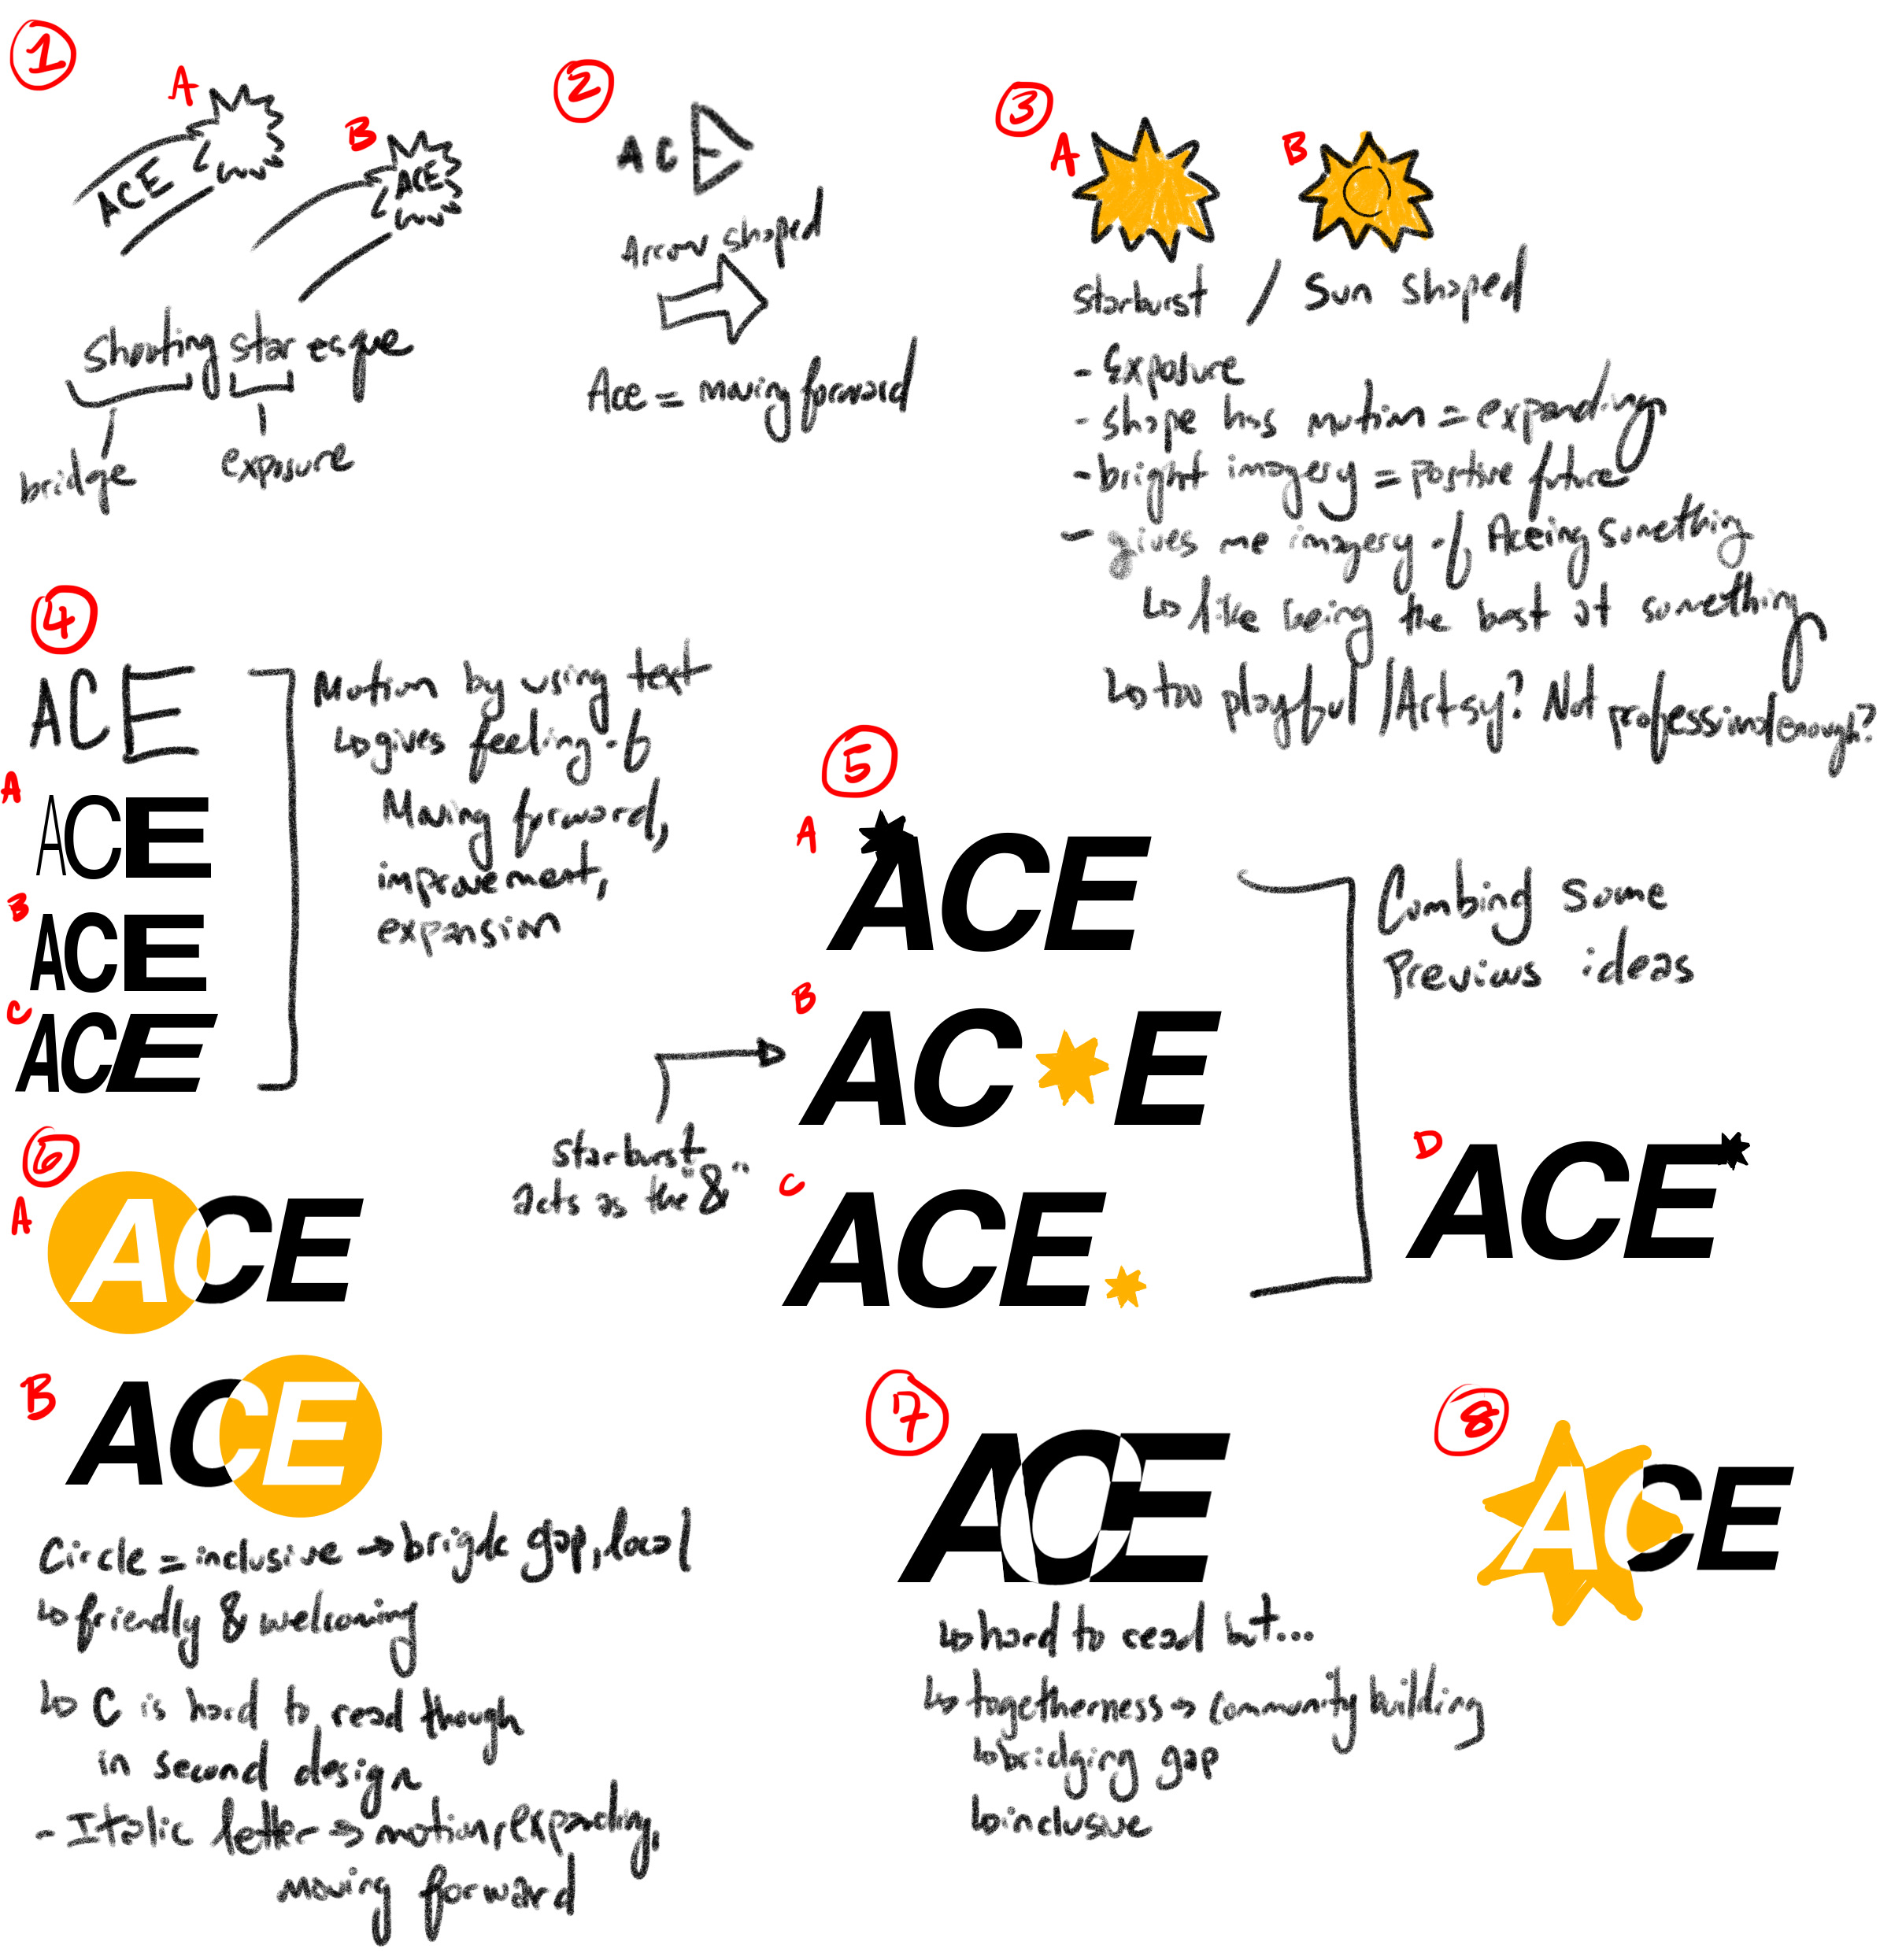 1
A
ACE
B
ACE
shooting star esque
bridge
exposure
2
ACE
Arrow shaped
Ace = moving forward
3
A
B
starburst / Sun shaped
- Exposure
- shape has motion = expanding
- bright imagery = positive future
- gives me imagery of Aceing something
↳ like being the best at something
↳ too playful / Artsy? Not professional enough?
4
ACE
A
ACE
B
ACE
C
ACE
Motion by using text
↳ gives feeling of
Moving forward,
improvement,
expansion
5
A
ACE
B
AC E
C
ACE
D
ACE
Combing some
Previous ideas
starburst
acts as the "&"
6
A
ACE
B
ACE
Circle = inclusive → brigde gap, local
↳ friendly & welcoming
↳ C is hard to read though
in second design
- Italic letter → motion, expanding,
moving forward
7
ACE
↳ hard to read but...
↳ togetherness → community building
↳ bridging gap
↳ inclusive
8
ACE